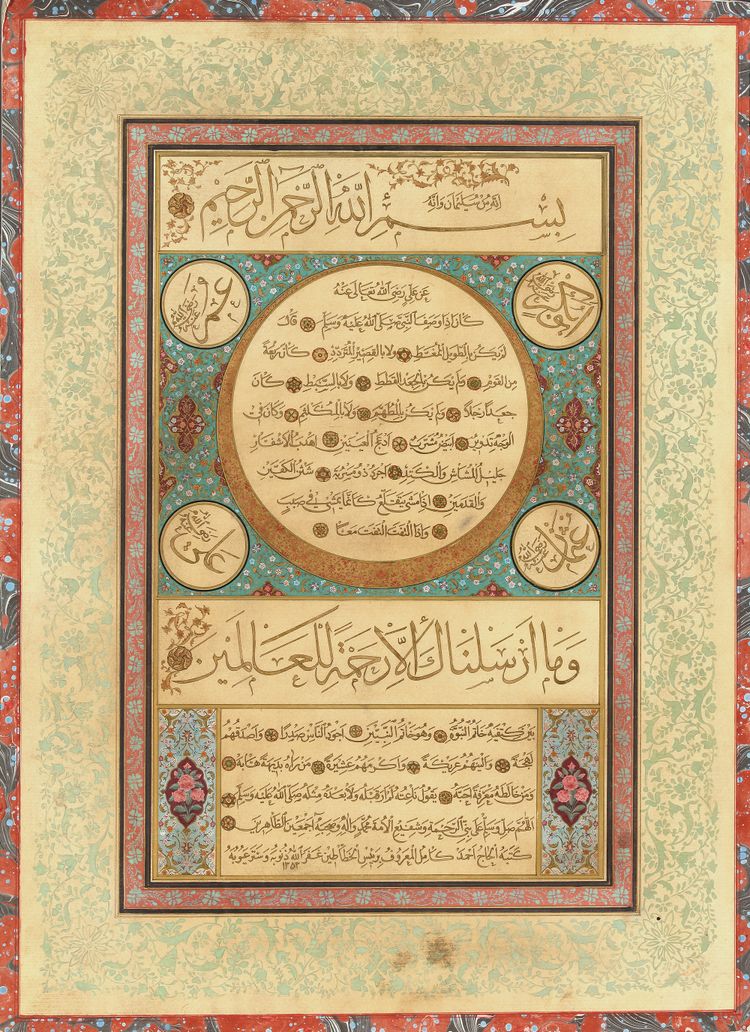 انه من سليمان وانه
بسم الله الرحمن الرحيم
ابو بكر رضي الله عنه
عمر رضي الله عنه
عن علي رضي الله تعالى عنه
كان اذا وصف النبي صلى الله عليه وسلم قال
لم يكن بالطويل الممغط ولا بالقصير المتردد كان ربعة
من القوم ولم يكن بالجعد القطط ولا بالسبط كان
جعدا رجلا ولم يكن بالمطهم ولا بالمكلثم وكان في
الوجه تدوير ابيض مشرب ادعج العينين اهدب الاشفار
جليل المشاش والكتد اجرد ذو مسربة شثن الكفين
والقدمين اذا مشى يتقلع كانما يمشي في صبب
واذا التفت التفت معا
عثمان رضي الله عنه
علي رضي الله عنه
وما ارسلناك الا رحمة للعالمين
بين كتفيه خاتم النبوة وهو خاتم النبيين اجود الناس صدرا واصدقهم
لهجة والينهم عريكة واكرمهم عشيرة من راه بديهة هابه
ومن خالطه معرفة احبه يقول ناعته لم ار قبله ولا بعده مثله صلى الله عليه وسلم
اللهم صل وسلم على نبي الرحمة وشفيع الامة محمد واله وصحبه اجمعين الطاهرين
كتبه الحاج احمد كامل المعروف برئيس الخطاطين غفر الله ذنوبه وستر عيوبه
١٣٥٣